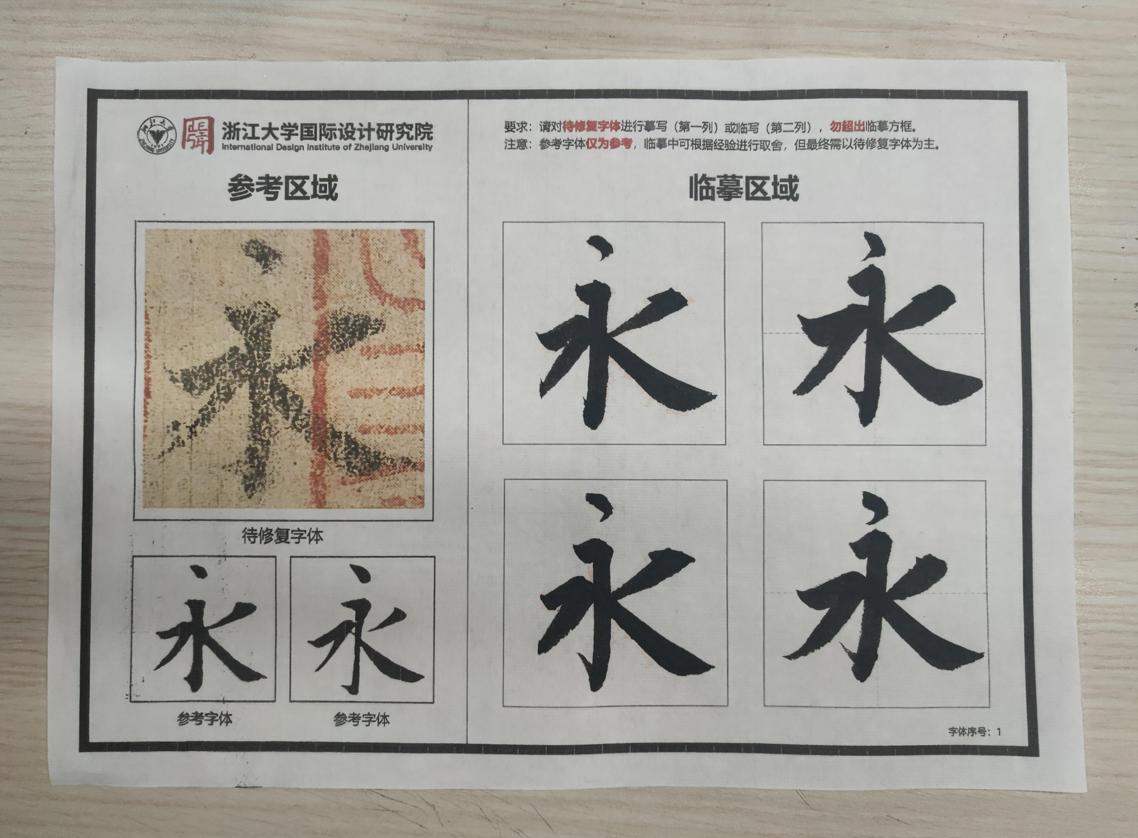 浙江大学国际设计研究院
International Design Institute of Zhejiang University
参考区域
永
待修复字体
永
永
参考字体
参考字体
要求：请对待修复字体进行摹写（第一列）或临写（第二列），勿超出临摹方框。
注意：参考字体仅为参考，临摹中可根据经验进行取舍，但最终需以待修复字体为主。
临摹区域
永
永
永
永
字体序号：1